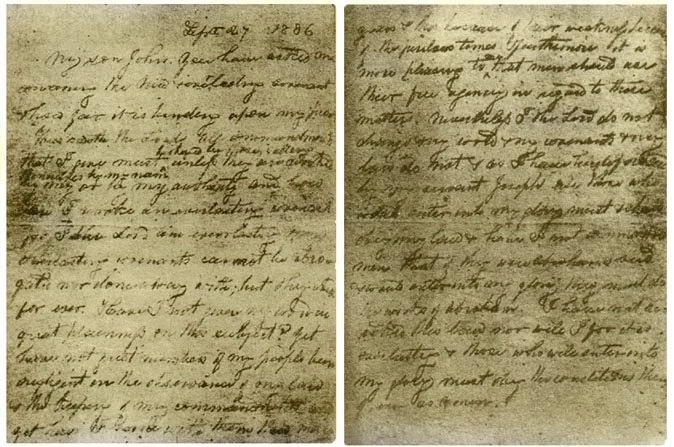 Sept 27 1886
My son John. You have asked me
concerning the New & everlasting covenant
& how far it is binding upon my people
Thus saith the Lord All commandments
that I give must be obeyed by those calling
themselves by my name unless they are revoked
by me or by my authority and how
can I revoke an everlasting covenant
for I the Lord am everlasting & my
everlasting covenants cannot be abro-
gated nor done away with; but they stand
for ever. Have I not given my word in
great plainness on this subject? Yet
have not great numbers of my people been
negligent in the observance of my law
& the keeping of my commandments and
yet have I borne with them these many
years & this because of their weakness because
of the perilous times. Furthermore it is
more pleasing to me that men should use
their free agency in regard to these
matters. Nevertheless I the Lord do not
change & my word & my covenants & my
law do not & as I have heretofore said
by my servant Joseph all those who
would enter into my glory must & shall
obey my law & have I not commanded
men that if they were Abrahams seed &
would enter into my glory they must do
the works of Abraham. I have not re-
voked this law nor will I for it is
everlasting & those who will enter into
my glory must obey the conditions there
of even so Amen.